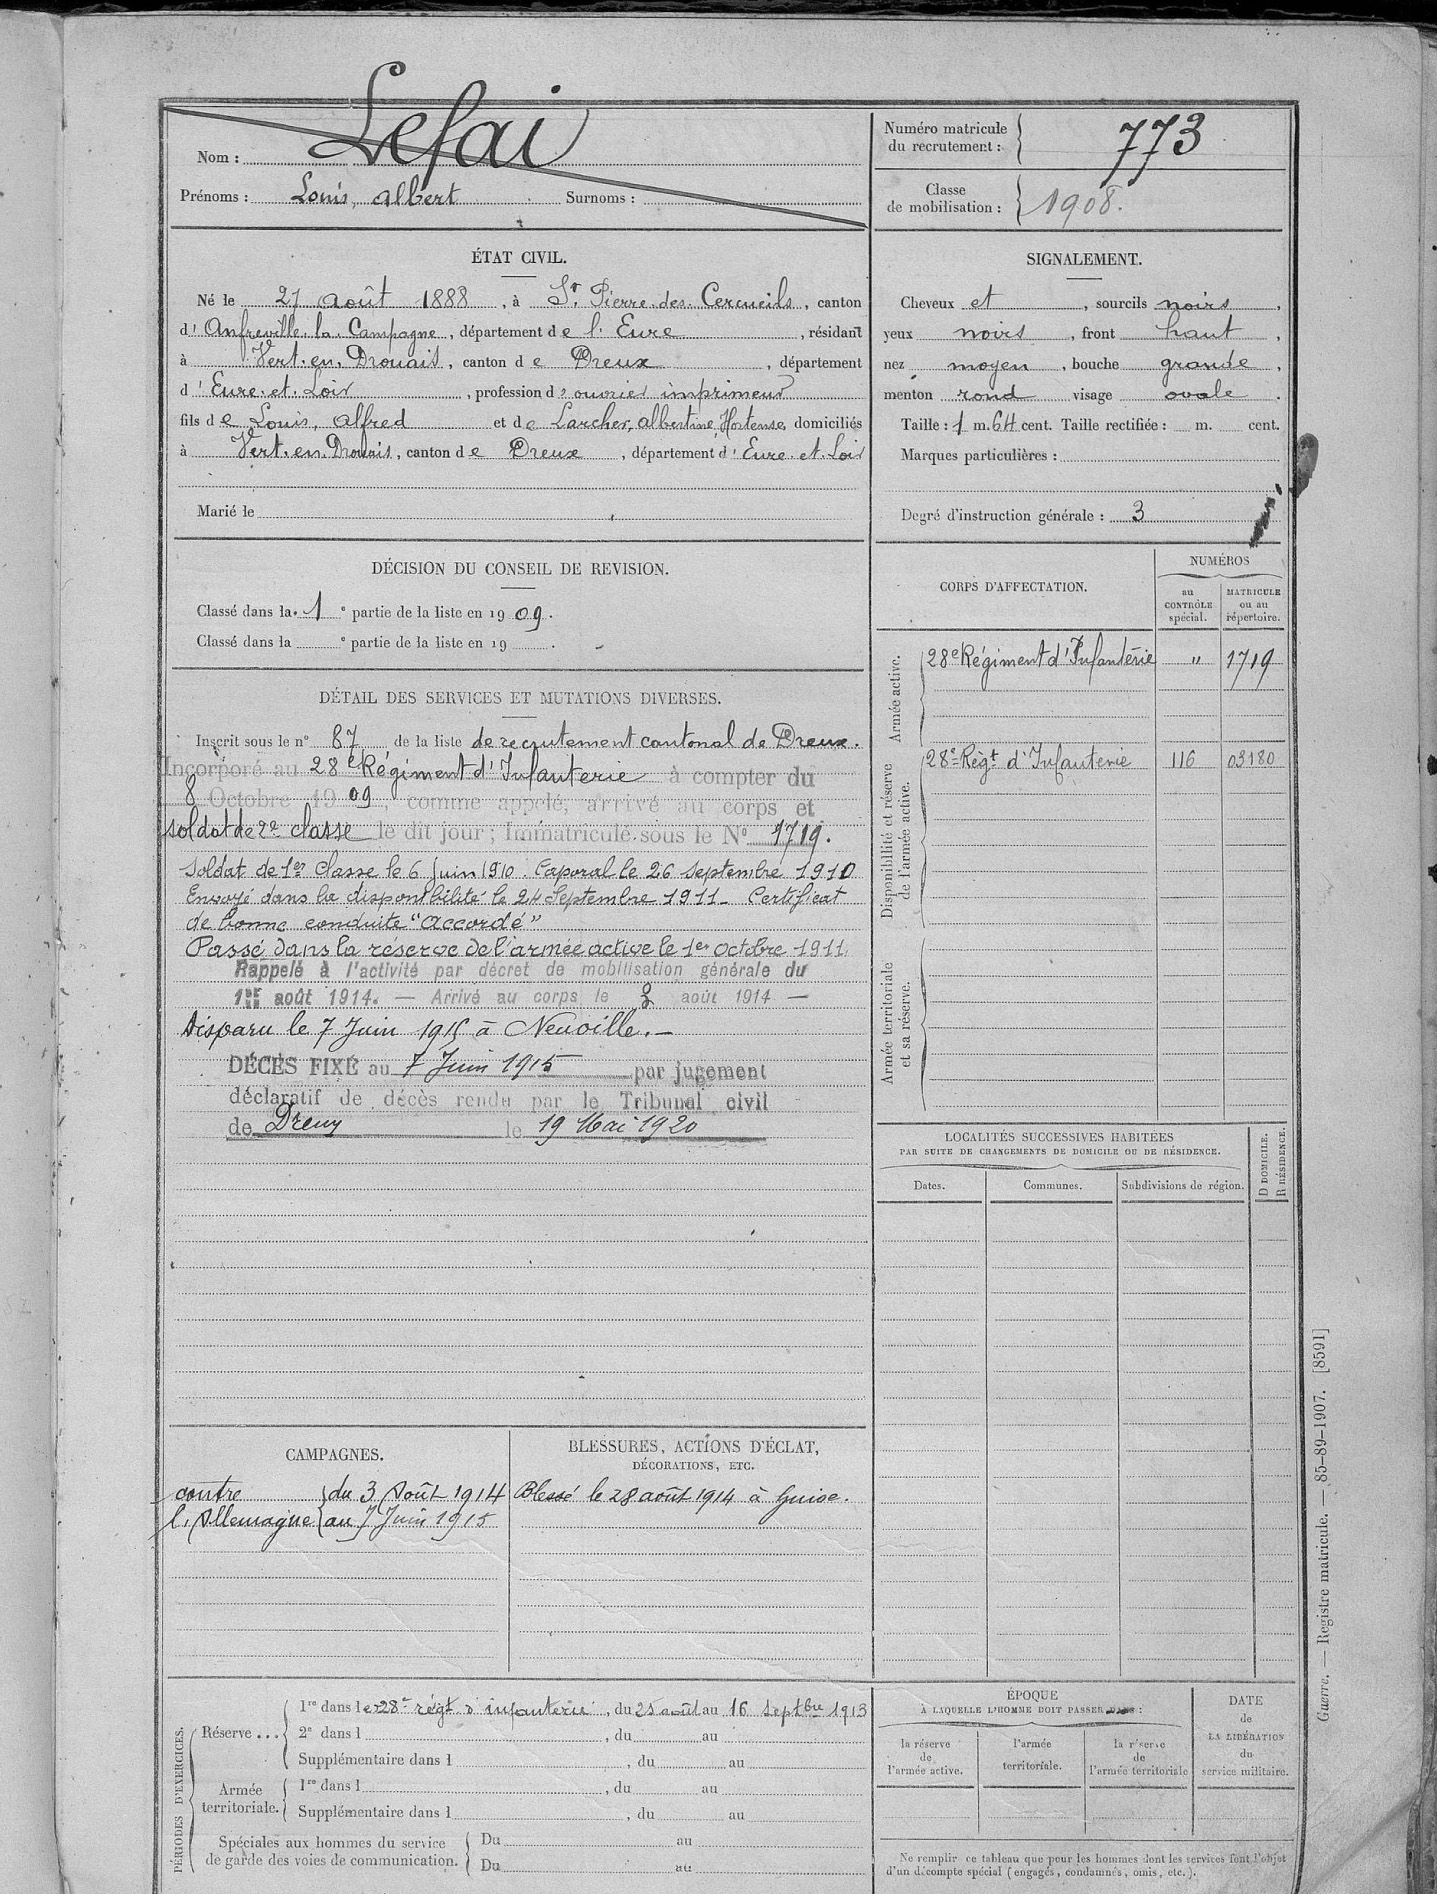 Nom : Lefai
Prénoms : Louis, Albert Surnoms :
Numéro matricule
du recrutement : 773
Classe
de mobilisation : 1908.
ÉTAT CIVIL.
Né le 27 Août 1888, à St Pierre des Cercueils, canton
d'Amfreville la Campagne, département de l'Eure, résidant
à Vert en Drouais, canton de Dreux, département
d'Eure et Loir, profession d'ouvrier imprimeur
fils de Louis, Alfred et de Larcher, Albertine Hortense, domiciliés
à Vert en Drouais, canton de Dreux, département d'Eure et Loir
Marié le
SIGNALEMENT.
Cheveux et, sourcils noirs,
yeux noirs, front haut,
nez moyen, bouche grande,
menton rond visage ovale.
Taille : 1 m. 64 cent. Taille rectifiée : m. cent.
Marques particulières :
Degré d'instruction générale : 3
DÉCISION DU CONSEIL DE REVISION.
Classé dans la 1e partie de la liste en 1909.
Classé dans la e partie de la liste en 19 .
CORPS D'AFFECTATION.
NUMÉROS
au
CONTRÔLE
spécial.
MATRICULE
ou au
répertoire.
Armée active.
28e Régiment d'Infanterie " 1719
Disponibilité et réserve
de l'armée active.
28e Régt d'Infanterie 116 03180
Armée territoriale
et sa réserve.
DÉTAIL DES SERVICES ET MUTATIONS DIVERSES.
Inscrit sous le n° 87 de la liste de recrutement cantonal de Dreux.
Incorporé au 28e Régiment d'Infanterie à compter du
8 Octobre 1909, comme appelé, arrivé au corps et
soldat de 2e classe le dit jour; Immatriculé sous le N° 1719.
Soldat de 1er Classe le 6 Juin 1910. Caporal le 26 Septembre 1910
Envoyé dans la disponibilité le 24 Septembre 1911 - Certificat
de bonne conduite "Accordé"
Passé dans la réserve de l'armée active le 1er Octobre 1911.
Rappelé à l'activité par décret de mobilisation générale du
1er août 1914. — Arrivé au corps le 3 août 1914 —
Disparu le 7 Juin 1915 à Neuville. -
DÉCÈS FIXÉ au 7 Juin 1915 par jugement
déclaratif de décès rendu par le Tribunal civil
de Dreux le 19 Mai 1920
LOCALITÉS SUCCESSIVES HABITÉES
PAR SUITE DE CHANGEMENTS DE DOMICILE OU DE RÉSIDENCE.
Dates.
Communes.
Subdivisions de région.
D DOMICILE.
R RÉSIDENCE.
CAMPAGNES.
contre du 3 Août 1914
l'Allemagne au 7 Juin 1915
BLESSURES, ACTIONS D'ÉCLAT,
DÉCORATIONS, ETC.
Blessé le 28 août 1914 à Guise.
PÉRIODES D'EXERCICES.
Réserve ...
1re dans le 28e régt d'infanterie, du 25 août au 16 Septbre 1913
2e dans l , du au
Supplémentaire dans l , du au
Armée
territoriale.
1re dans l , du au
Supplémentaire dans l , du au
Spéciales aux hommes du service
de garde des voies de communication.
Du au
Du au
ÉPOQUE
À LAQUELLE L'HOMME DOIT PASSER DANS :
la réserve
de
l'armée active.
l'armée
territoriale.
la réserve
de
l'armée territoriale
DATE
de
LA LIBÉRATION
du
service militaire.
Ne remplir ce tableau que pour les hommes dont les services font l'objet
d'un décompte spécial (engagés, condamnés, omis, etc.).
Guerre. — Registre matricule. — 85-89-1907. [8591]